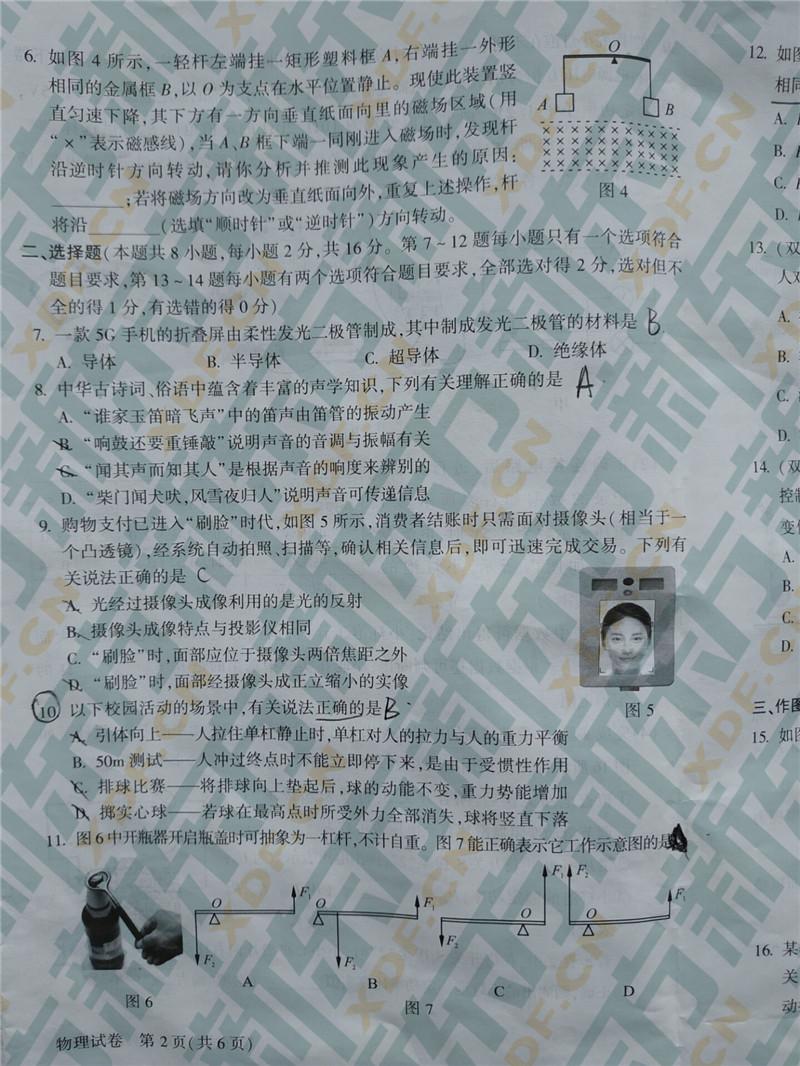 6. 如图 4 所示,一轻杆左端挂一矩形塑料框 A,右端挂一外形
相同的金属框 B,以 O 为支点在水平位置静止。现使此装置竖
直匀速下降,其下方有一方向垂直纸面向里的磁场区域(用
“×”表示磁感线),当 A、B 框下端一同刚进入磁场时,发现杆
沿逆时针方向转动,请你分析并推测此现象产生的原因:
________;若将磁场方向改为垂直纸面向外,重复上述操作,杆
将沿________(选填“顺时针”或“逆时针”)方向转动。
O
A
B
图 4
二、选择题(本题共 8 小题,每小题 2 分,共 16 分。第 7~12 题每小题只有一个选项符合
题目要求,第 13~14 题每小题有两个选项符合题目要求,全部选对得 2 分,选对但不
全的得 1 分,有选错的得 0 分)
7. 一款 5G 手机的折叠屏由柔性发光二极管制成,其中制成发光二极管的材料是 B
A. 导体 B. 半导体 C. 超导体 D. 绝缘体
8. 中华古诗词、俗语中蕴含着丰富的声学知识,下列有关理解正确的是 A
A. “谁家玉笛暗飞声”中的笛声由笛管的振动产生
B. “响鼓还要重锤敲”说明声音的音调与振幅有关
C. “闻其声而知其人”是根据声音的响度来辨别的
D. “柴门闻犬吠,风雪夜归人”说明声音可传递信息
9. 购物支付已进入“刷脸”时代,如图 5 所示,消费者结账时只需面对摄像头(相当于一
个凸透镜),经系统自动拍照、扫描等,确认相关信息后,即可迅速完成交易。下列有
关说法正确的是 C
A. 光经过摄像头成像利用的是光的反射
B. 摄像头成像特点与投影仪相同
C. “刷脸”时,面部应位于摄像头两倍焦距之外
D. “刷脸”时,面部经摄像头成正立缩小的实像
图 5
10 以下校园活动的场景中,有关说法正确的是 B
A. 引体向上——人拉住单杠静止时,单杠对人的拉力与人的重力平衡
B. 50m 测试——人冲过终点时不能立即停下来,是由于受惯性作用
C. 排球比赛——将排球向上垫起后,球的动能不变,重力势能增加
D. 掷实心球——若球在最高点时所受外力全部消失,球将竖直下落
11. 图 6 中开瓶器开启瓶盖时可抽象为一杠杆,不计自重。图 7 能正确表示它工作示意图的是
O F₁ F₂
A
O F₁ F₂
B
O F₁ F₂
C
F₂ O F₁
D
图 6
图 7
物理试卷 第 2 页(共 6 页)
12. 如图
相同
A.
B.
C.
D.
13. (双
人对
A.
B.
C.
D.
14. (双
控制
变
A.
B.
C.
D.
三、作图
15. 如图
16. 某
关
动